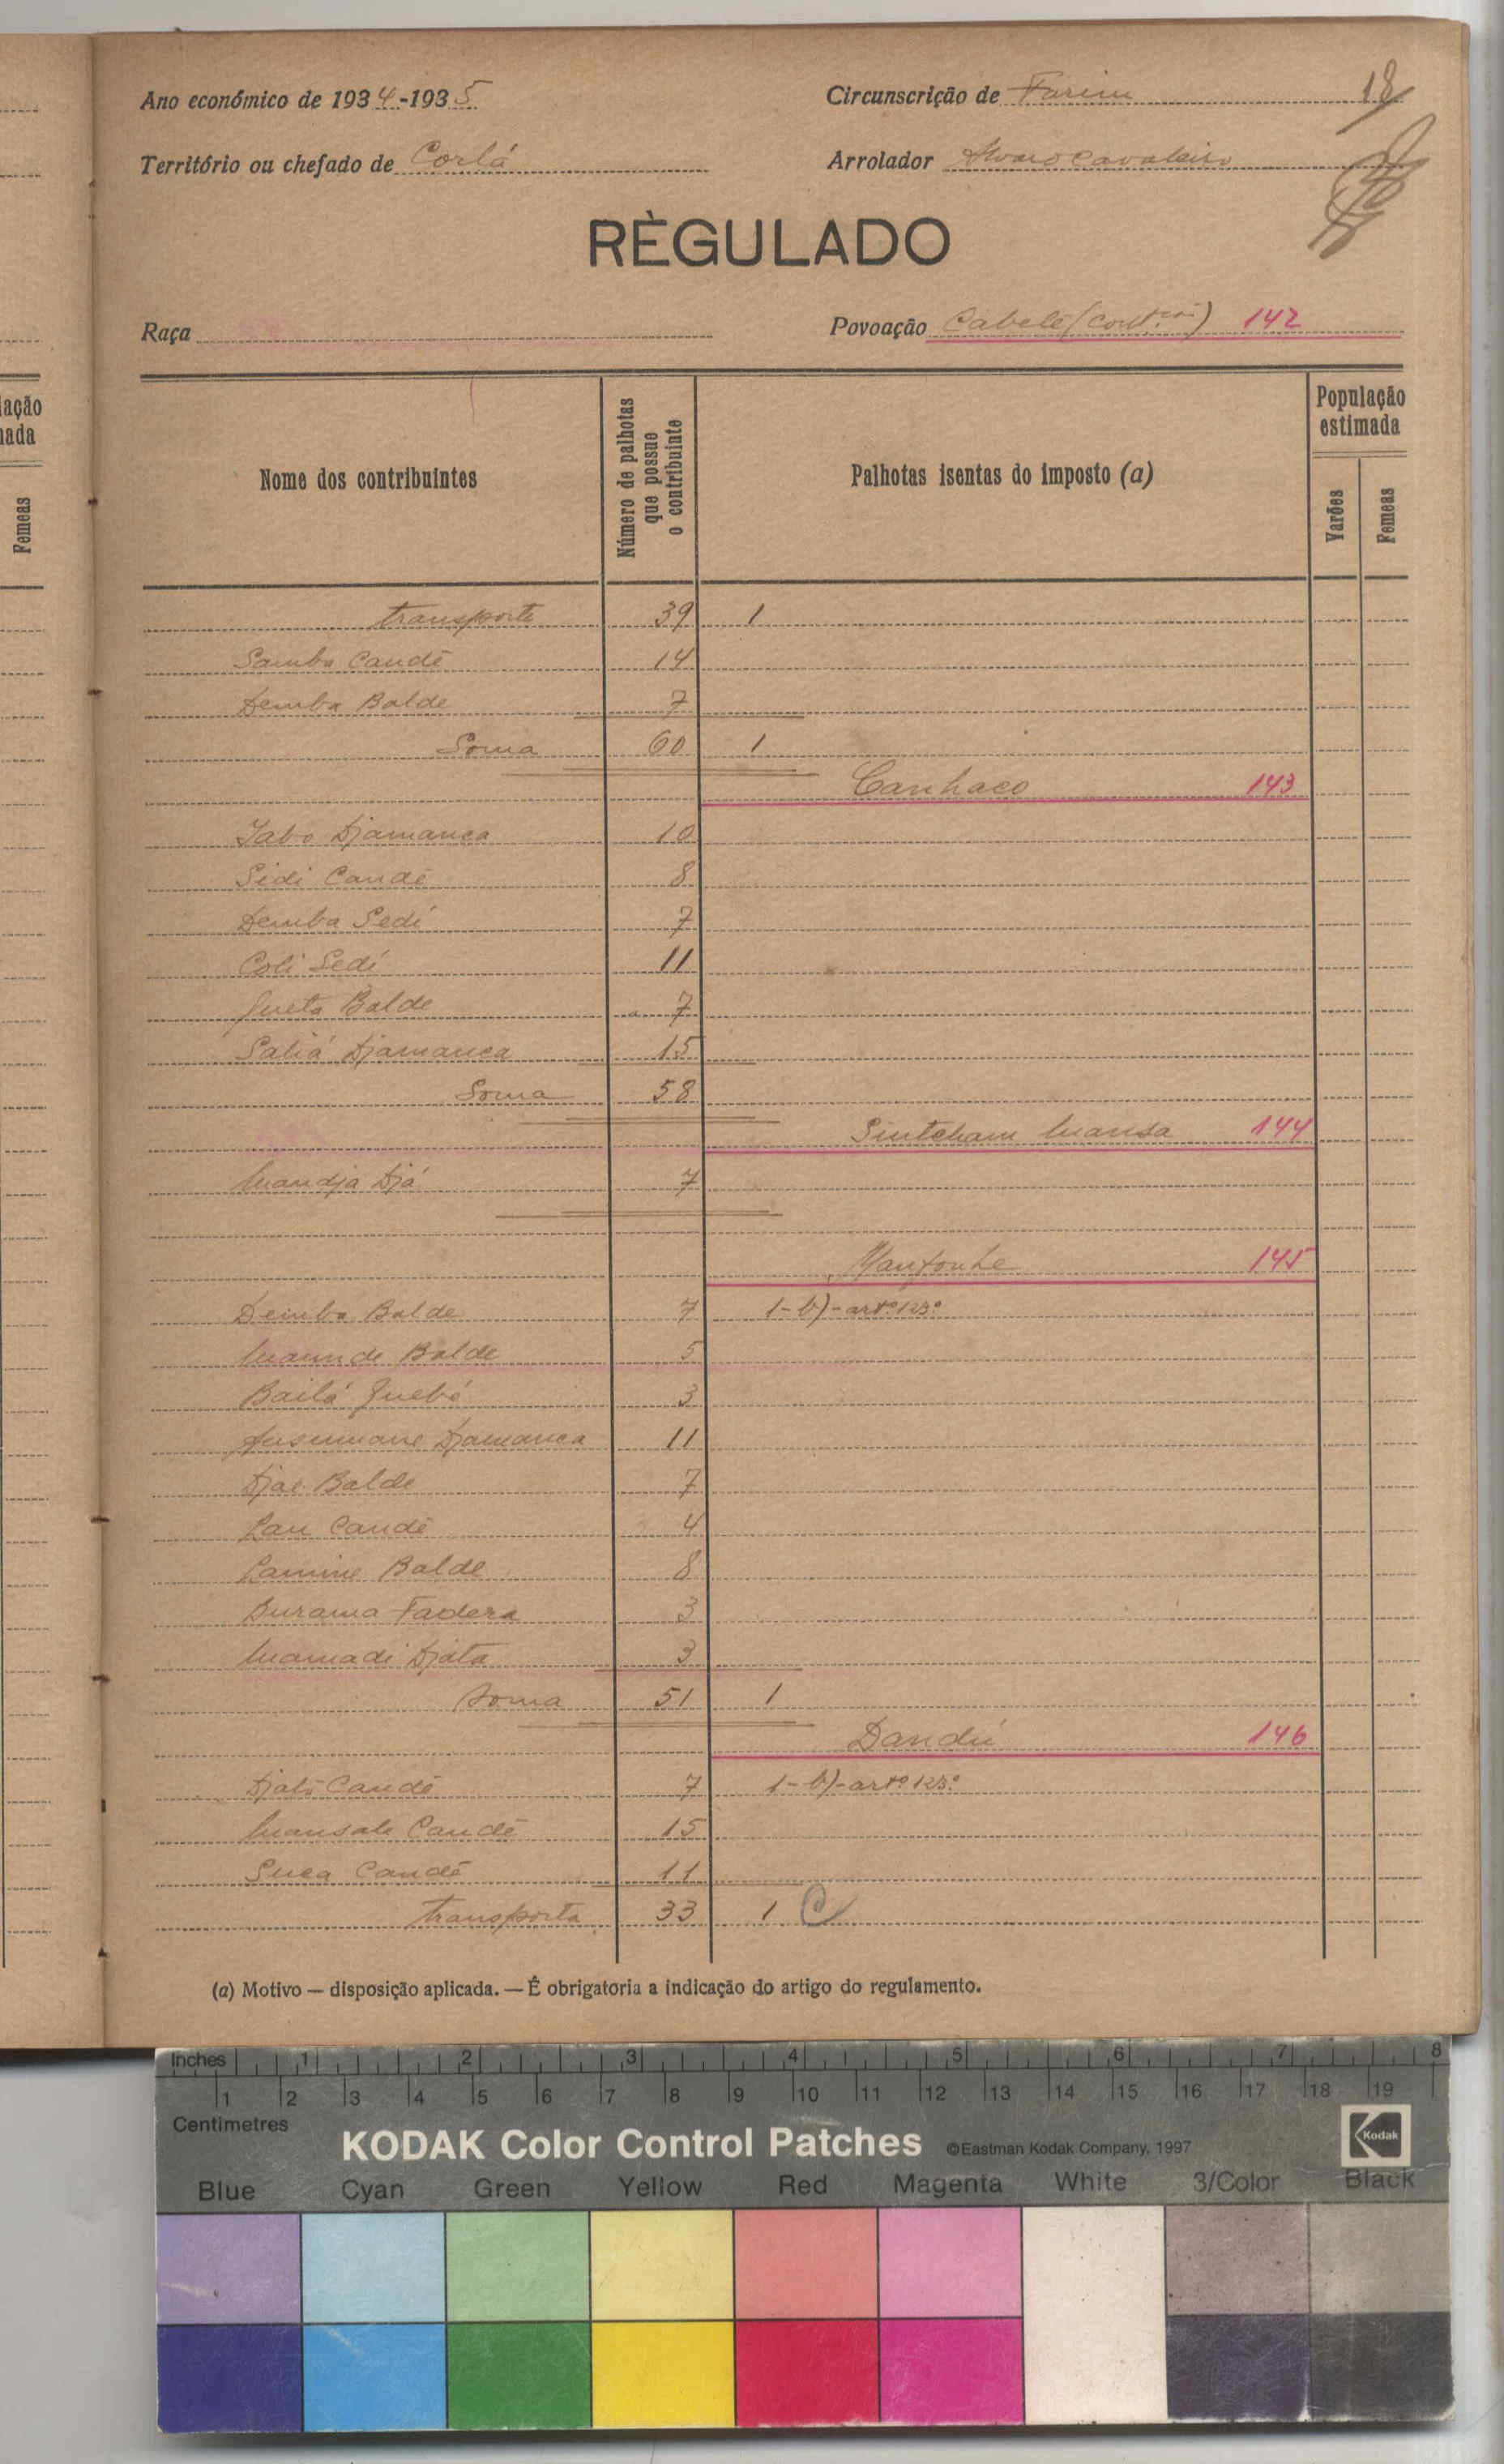 Ano económico de 1934-1935
Circunscrição de Farim
18
Território ou chefado de Corlá
Arrolador Alvaro Cavaleiro
RÈGULADO
Raça
Povoação Cabelé (contção) 142
Nome dos contribuintes
Número de palhotas que possue o contribuinte
Palhotas isentas do imposto (a)
População estimada
Varões
Femeas
transporte 39 1
Samba Candé 14
Demba Balde 7
Soma 60 1
Canhaco 143
Iabo Djamanca 10
Sidi Candé 8
Demba Sedi 7
Coli Sedi 11
Gueta Balde 7
Saliá Djamanca 15
Soma 58
Sintcham Mansa 144
Mandja Djá 7
145
Demba Balde 7 1-b)-artº 123º
Maunde Balde 5
Bailá Quebó 3
Djamanca 11
Djae Balde 7
Lau Candé 4
Lamine Balde 8
Burama Fadera 3
Mamadi Djata 3
Soma 51 1
Dandú 146
Djaló Candé 7 1-b)-artº 123º
Mansale Candé 15
Suca Candé 11
transporta 33 1
(a) Motivo — disposição aplicada. — É obrigatoria a indicação do artigo do regulamento.
lação
nada
Femeas
Inches 1 2 3 4 5 6 7 8
1 2 3 4 5 6 7 8 9 10 11 12 13 14 15 16 17 18 19
Centimetres
KODAK Color Control Patches ©Eastman Kodak Company, 1997 Kodak
Blue Cyan Green Yellow Red Magenta White 3/Color Black